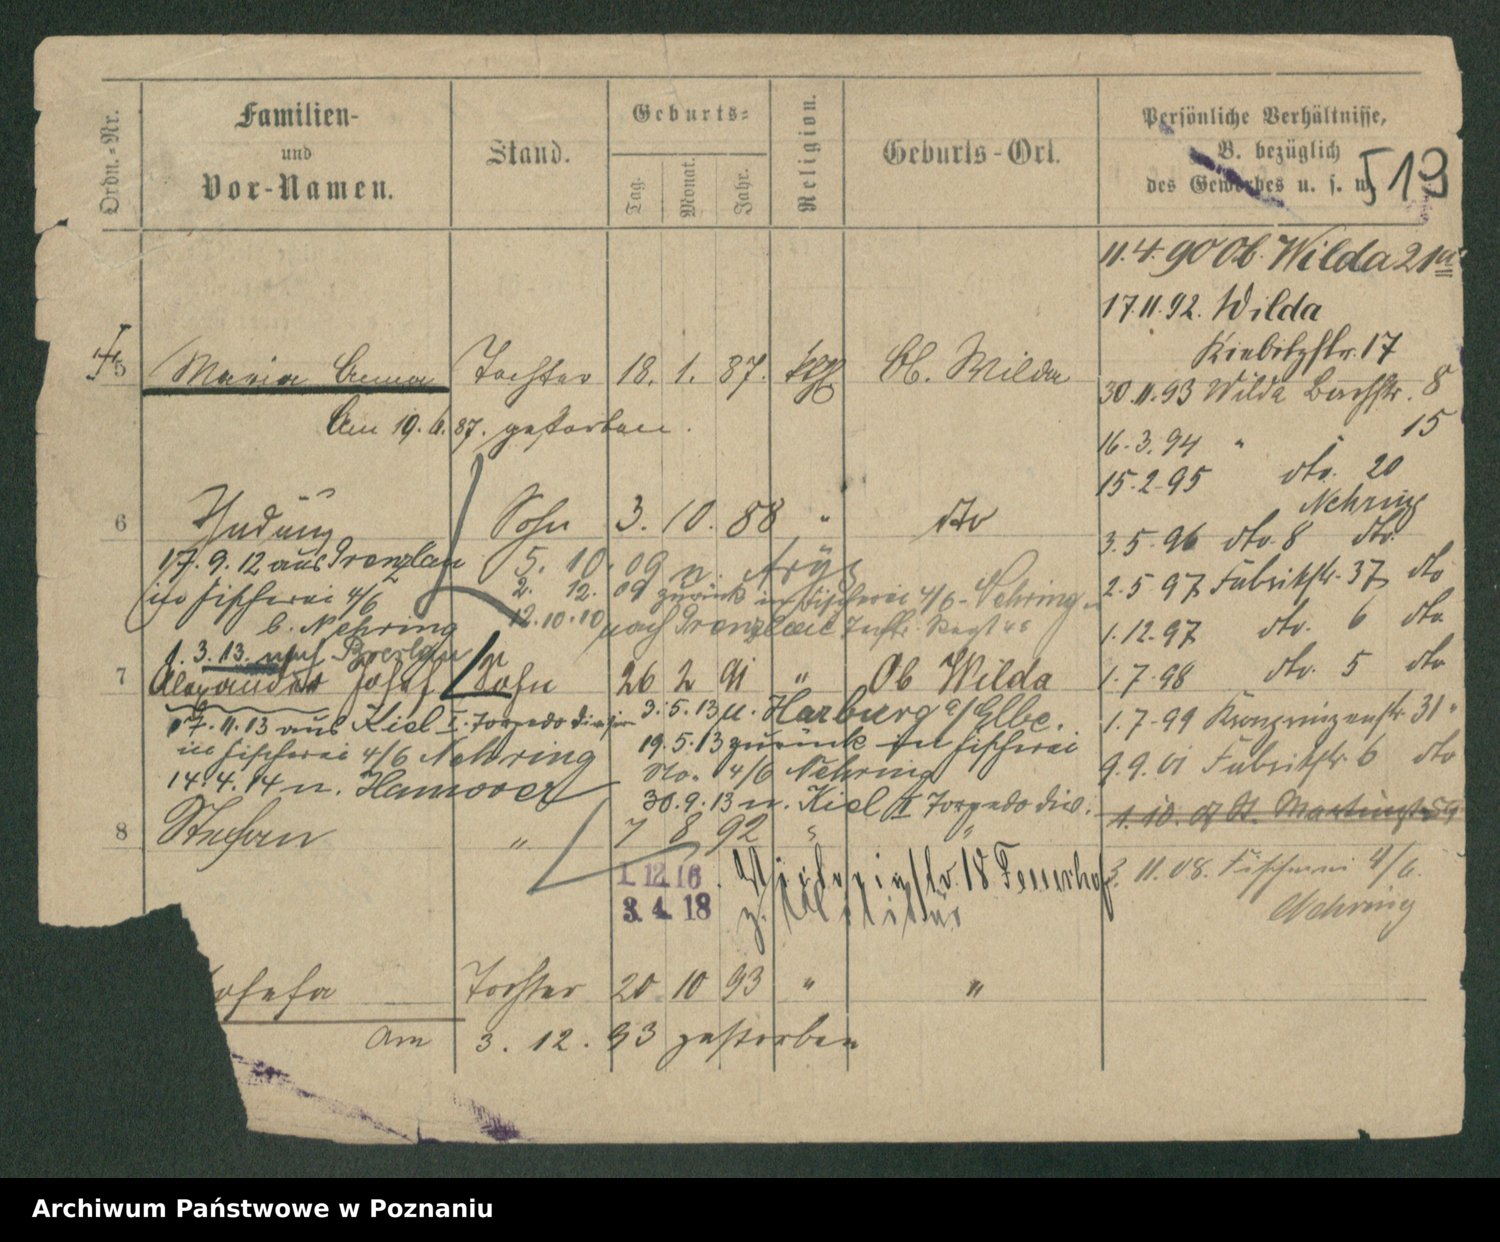 Ordn.-Nr.
Familien-
und
Vor-Namen.
Stand.
Geburts-
Tag.
Monat.
Jahr.
Religion.
Geburts-Ort.
Persönliche Verhältnisse,
B. bezüglich
des Gewerbes u. s. w.
513
11.4.90 Ob. Wilda 21
17.11.92. Wilda
Kiebitzstr. 17
5 Maria Anna Tochter 18. 1. 87. kth Ob. Wilda
30.11.93 Wilda Bachstr. 8
Am 19. 6. 87. gestorben.
16.3.94 " " 15
15.2.95 dto. 20
Nehring
6 Sohn 3. 10. 88 " dto
3.5.96 dto. 8 dto.
17.9.12 aus Prenzlau
5. 10. 09 n. Arys
in Fischerei 4/6
2. 12. 09 zurück in Fischerei 4/6 - Nehring
2.5.97 Fabrikstr. 37 dto
b. Nehring
12.10.10 nach Prenzlau Inftr. Regt
1.12.97 dto. 6 dto.
1. 3.13. nach Breslau
7 Alexander Josef Sohn 26 2 91 " Ob Wilda
1.7.98 dto. 5 dto
17.11.13 aus Kiel I. Torpedo Division
3.5.13 n. Harburg a/Elbe.
1.7.99 Kronprinzenstr. 31 "
in Fischerei 4/6 Nehring
19.5.13 zurück in Fischerei
No. 4/6 Nehring
9.9.01 Fabrikstr. 6 dto
14.4.14 n. Hannover
30.9.13 n. Kiel II Torpedo Div.
1.10.07 St. Martinstr. 59
8 Stefan " 7 8 92 " "
1. 12. 16. Victoriastr. 18 Feuerhof
3. 11. 08. Fischerei 4/6.
3. 4. 18 z. Militär
Nehring
osefa Tochter 20 10 93 " "
Am 3. 12. 93 gestorben
Archiwum Państwowe w Poznaniu